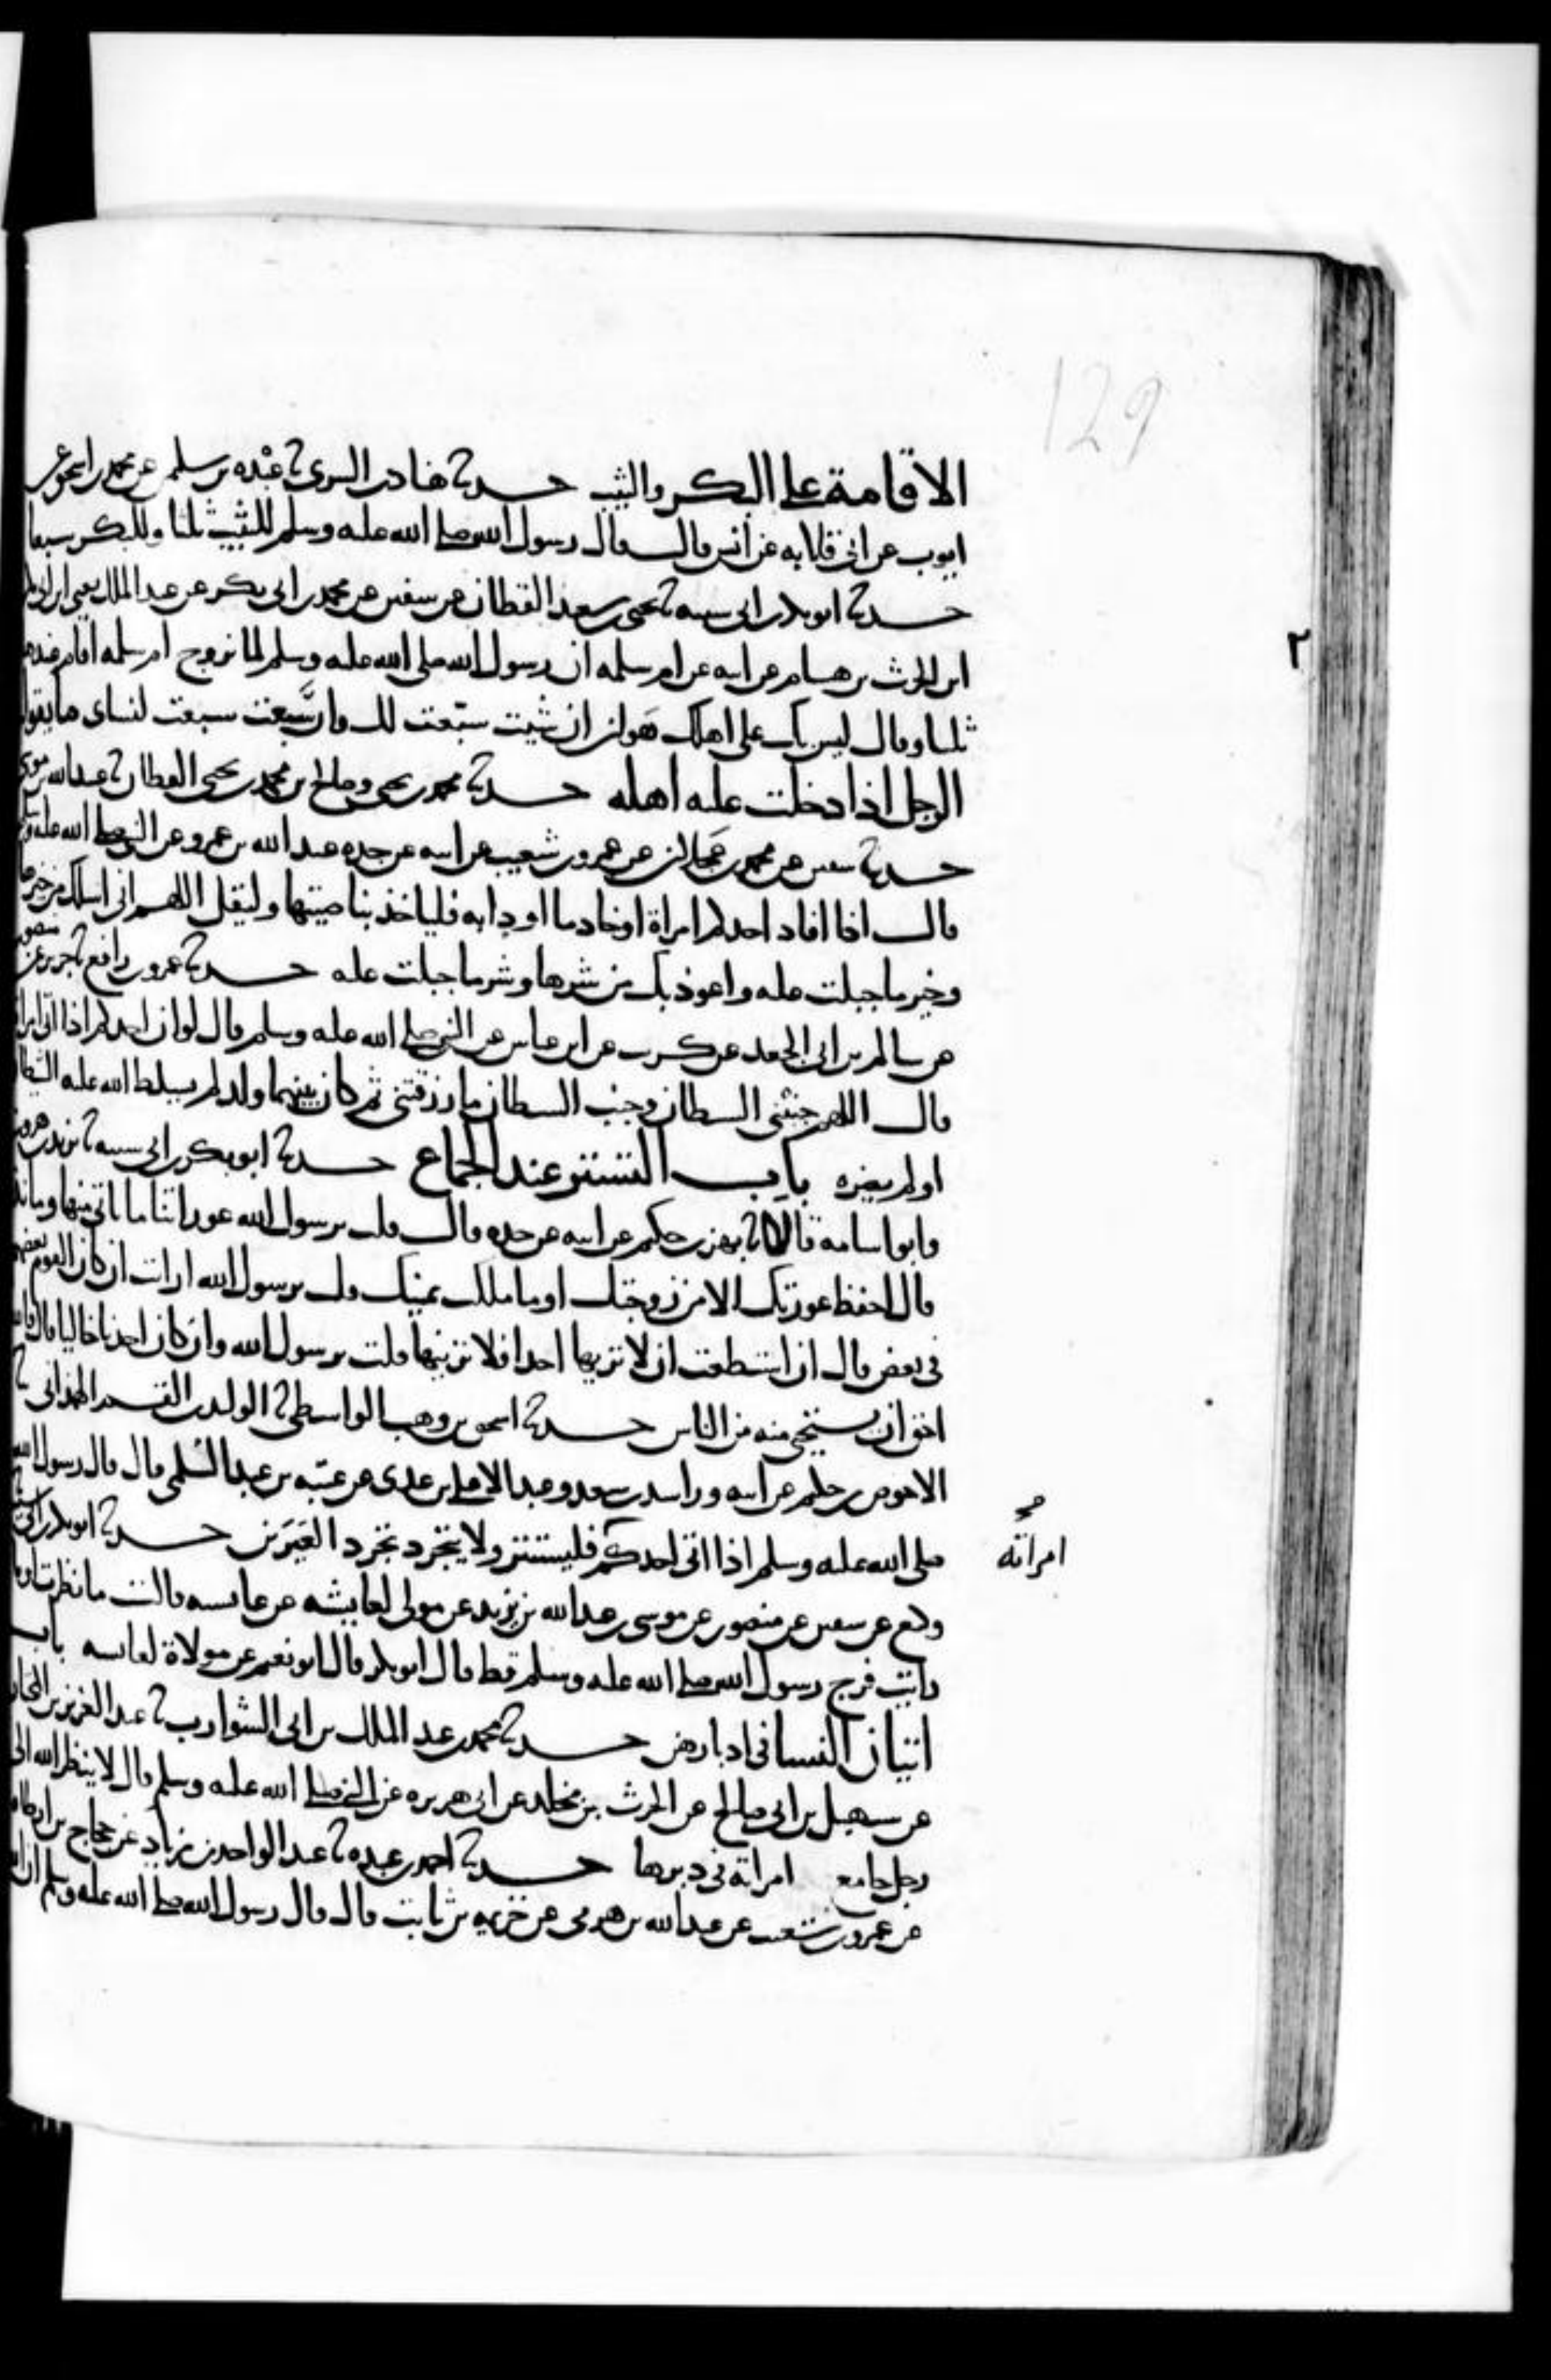 129
الاقامة على البكر والثيب حدثنا هناد بن السرى ثنا عبده بن سليمن عن محمد بن اسحق عن
ايوب عن ابى قلابه عن انس قال قال رسول الله صلى الله عليه وسلم للثيب ثلثا وللبكر سبعا
حدثنا ابو بكر بن ابى شيبه ثنا يحيى بن سعيد القطان عن سفين عن محمد بن ابى بكر عن عبد الملك يعنى ابن ابى بكر
٢
ابن الحرث بن هشام عن ابيه عن ام سلمه ان رسول الله صلى الله عليه وسلم لما تزوج ام سلمه اقام عندها
ثلثا وقال ليس بك على اهلك هوان ان شيت سبّعت لك وان سبّعت لك سبعت لنساى ما يقول
الرجل اذا دخلت عليه اهله حدثنا محمد بن يحيى وصالح بن محمد بن يحيى القطان ثنا عبد الله بن موسى
حدثنا سفين عن محمد بن عجلان عن عمرو بن شعيب عن ابيه عن جده عبد الله بن عمرو عن النبى صلى الله عليه وسلم
قال اذا افاد احدكم امراة او خادما او دابه فلياخذ بناصيتها وليقل اللهم انى اسلك من خيرها
وخير ما جبلت عليه واعوذ بك من شرها وشر ما جبلت عليه حدثنا عمرو بن رافع ثنا جرير عن منصور
عن سالم بن ابى الجعد عن كريب عن ابن عباس عن النبى صلى الله عليه وسلم قال لو ان احدكم اذا اتى امراته
قال اللهم جنبنى الشيطان وجنب الشيطان ما رزقتنى ثم كان بينهما ولد لم يسلط الله عليه الشيطان
او لم يضره باب التستر عند الجماع حدثنا ابو بكر بن ابى شيبه ثنا يزيد بن هرون
وابو اسامه قالا ثنا بهز بن حكيم عن ابيه عن جده قال قلت يرسول الله عوراتنا ما ناتى منها وما نذر
قال احفظ عورتك الا من زوجتك او ما ملكت يمينك قلت يرسول الله ارايت ان كان القوم بعضهم
فى بعض قال ان استطعت ان لا تريها احدا فلا ترينها قلت يرسول الله وان كان احدنا خاليا قال فالله
احق ان يستحيى منه من الناس حدثنا اسحق بن وهب الواسطى ثنا الوليد بن القسم الهمدانى ثنا
الاحوص بن حكيم عن ابيه وراشد بن سعد وعبد الاعلى بن عدى عن عتبه بن عبد السلمى قال قال رسول الله
صلى الله عليه وسلم اذا اتى احدكم فليستتر ولا يتجرد تجرد العيرين حدثنا ابو بكر بن ابى شيبه ثنا
صح
امراته
وكيع عن سفين عن منصور عن موسى بن عبد الله بن يزيد عن مولى لعايشه عن عايشه قالت ما نظرت او ما
رايت فرج رسول الله صلى الله عليه وسلم قط قال ابو بكر قال ابو نعيم عن مولاة لعايشه باب
اتيان النسا فى ادبارهن حدثنا محمد بن عبد الملك بن ابى الشوارب ثنا عبد العزيز بن المختار
عن سهيل بن ابى صالح عن الحرث بن مخلد عن ابى هريره عن النبى صلى الله عليه وسلم قال لا ينظر الله الى
رجل جامع امراته فى دبرها حدثنا احمد بن عبده ثنا عبد الواحد بن زياد عن حجاج بن ارطاه
عن عمرو بن شعيب عن عبد الله بن هرمى عن خزيمه بن ثابت قال قال رسول الله صلى الله عليه وسلم ان الله